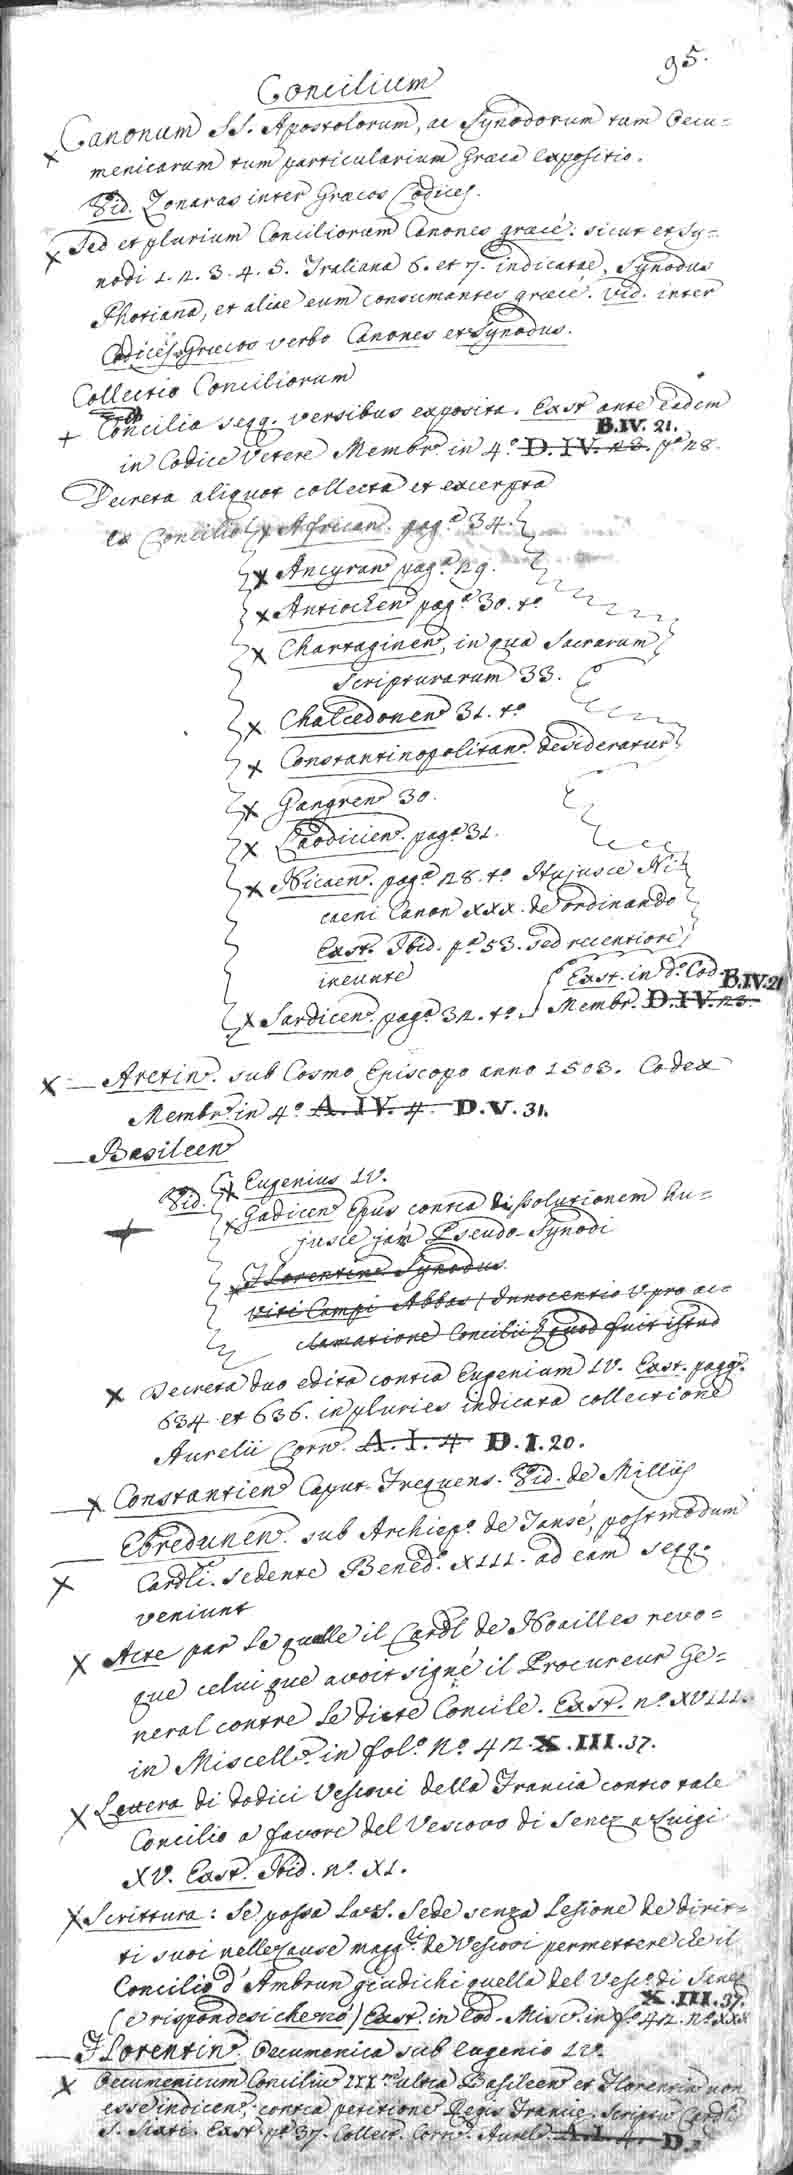 95.
Concilium
Canonum SS. Apostolorum, ac Synodorum tum Oecu=
menicarum tum particularium Graeca expositio.
Vid. Zonaras inter Graecos Codices.
Sed et plurium Conciliorum Canones graecè: sicut et Sy=
nodi 1. 2. 3. 4. 5. Trullana 6. et 7. indicatae, Synodus
Photiana, et aliae cum consumantes graecè. Vid. inter
Codices Graecos verbo Canones et Synodus.
Collectio Conciliorum
+ Concilia segg. versibus exposita. Exst ante eadem
B.IV. 21.
in Codice vetere Membr. in 4.° D.IV. 23. p.ª 28.
Decreta aliquot collecta et excerpta
ex Concilio x African. pag.ª 34.
x Ancyran. pag.ª 29.
x Antiochen. pag.ª 30. t.º
x Chartaginen, in qua Sacrarum
Scripturarum 33.
x Chalcedonen 31. t.º
x Constantinopolitan. desideratur
x Gangren 30.
x Laodicien. pag.ª 31.
x Nicaen. pag.ª 28. t.º Hujusce Ni=
caeni Canon XXX. de ordinando
Exst. Ibid. p.ª 53. sed recentiore
ineunte
Exst. in d.º Cod. B.IV.21
x Sardicen. pag.ª 32. t.º Membr. D.IV. 23.
x — Aretin. sub Cosmo Episcopo anno 1503. Codex
Membr. in 4.º A.IV. 4. D.V. 31.
— Basileen
Vid. x Eugenius IV.
x Gadicen Epus contra dissolutionem hu=
jusce jam Pseudo-Synodi
x Florentin. Synodus
Viti Campi Abbas / Innocentio V. pro ac=
clamatione Concilii quod fuit istud
x Decreta duo edita contra Eugenium IV. Exst. pagg.
634 et 636. in pluries indicata collectione
Aurelii Corn. A. I. 4 D. I. 20.
— x Constantien Caput Frequens. Vid. de Milliis
— Ebredunen. sub Archiep.º de Tansé, postmodum
x Cardli. sedente Bened.º XIII. ad eam segg.
veniunt
x Acte par le quelle il Cardl de Noailles revo=
que celui que avoit signé il Procureur Ge=
neral contre le dicte Concile. Exst. n.º XVIII.
in Miscell. in fol.º N.º 42. X.III.37.
x Lettera di dodici Vescovi della Francia contro tale
Concilio a favore del Vescovo di Senez a Luigi
XV. Exst. Ibid. n.º XI.
x Scrittura: Se possa la S. Sede senza lesione de dirit=
ti suoi nelle Cause magg.ri de Vescovi permettere che il
Concilio d'Ambrun giudichi quella del Vesc.º di Senez
X.III.37.
(e rispondesi che nò) Exst. in Cod. Misc. in f.º 42. n.º XXX
— Florentin. Oecumenica sub Eugenio IV.
x Oecumenicum Conciliu III.m ultra Basileen et Florentin non
esse indicen. contra petitione Regis Franciae. Scriptu Cardl
S. Sixti. Exst. p.ª 37. Collect. Corn. Aurel. A.I. 4. D.